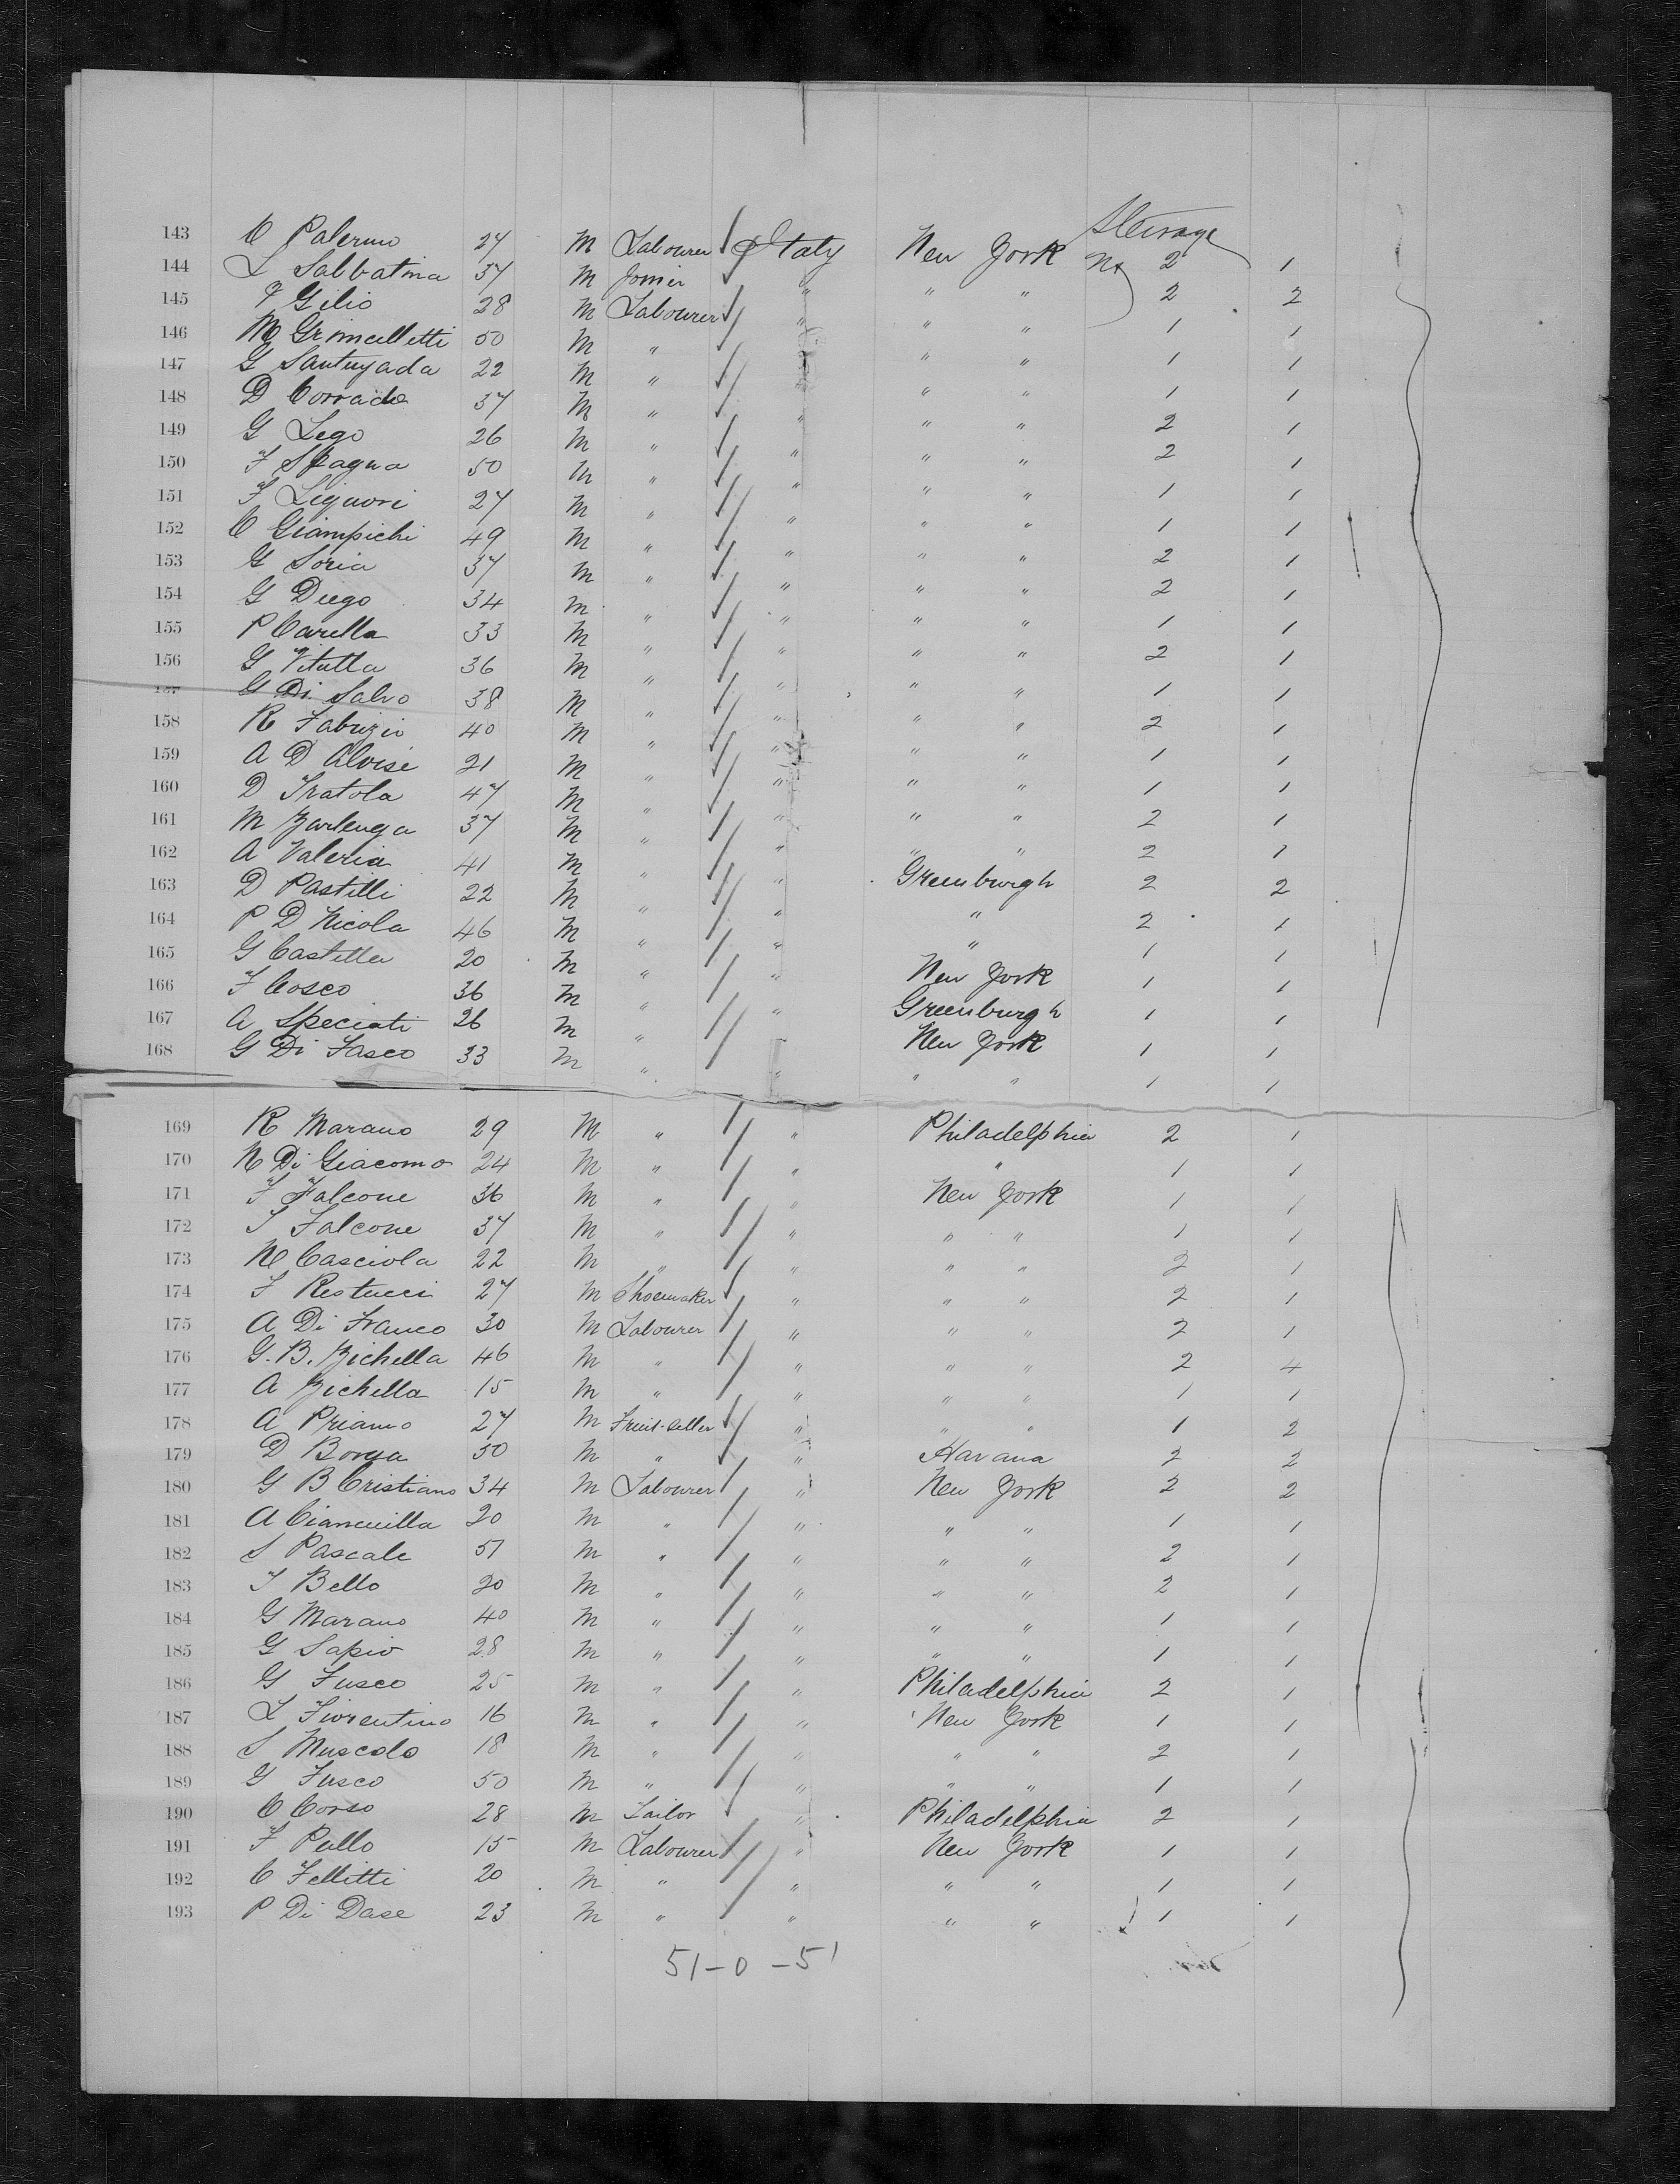 Steirage
143 C Palermo 27 M Labourer Italy New York No 2 1
144 L Sabbatina 37 M Joiner " " " 2 2
145 F Gilio 28 M Labourer " " " 1 1
146 M Grimcelletti 50 M " " " " 1 1
147 G Santuyada 22 M " " " " 1 1
148 D Corrado 37 M " " " " 2 1
149 G Lego 26 M " " " " 2 1
150 F Spagna 50 M " " " " 1 1
151 F Liguori 27 M " " " " 1 1
152 C Giampichi 49 M " " " " 2 1
153 G Soria 37 M " " " " 2 1
154 G Diego 34 M " " " " 1 1
155 P Carella 33 M " " " " 2 1
156 G Vitulla 36 M " " " " 1 1
157 G Di Salvo 38 M " " " " 2 1
158 R Fabrizio 40 M " " " " 1 1
159 A D Aloise 21 M " " " " 1 1
160 D Iratola 47 M " " " " 2 1
161 M Zarlenga 37 M " " " " 2 1
162 A Valeria 41 M " " Greenburgh 2 2
163 D Pastilli 22 M " " " 2 1
164 P D Nicola 46 M " " " 1 1
165 G Castella 20 M " " New York 1 1
166 F Cosco 36 M " " Greenburgh 1 1
167 A Speciati 26 M " " New York 1 1
168 G Di Fasco 33 M " " " " 1 1
169 R Marano 29 M " " Philadelphia 2 1
170 N Di Giacomo 24 M " " " 1 1
171 F Falcone 36 M " " New York 1 1
172 S Falcone 37 M " " " " 1 1
173 N Casciola 22 M " " " " 2 1
174 F Restucci 27 M Shoemaker " " " 2 1
175 A Di Franco 30 M Labourer " " " 2 1
176 G. B. Zichella 46 M " " " " 2 4
177 A Zichella 15 M " " " " 1 1
178 A Priamo 27 M Fruit-seller " " " 1 2
179 D Borga 50 M " " Havana 2 2
180 G B Cristiano 34 M Labourer " New York 2 2
181 A Ciancuilla 20 M " " " " 1 1
182 S Pascale 51 M " " " " 2 1
183 F Bello 20 M " " " " 2 1
184 G Marano 40 M " " " " 1 1
185 G Sapio 28 M " " " " 1 1
186 G Fusco 25 M " " Philadelphia 2 1
187 L Fiorentino 16 M " " New York 1 1
188 S Muscolo 18 M " " " " 2 1
189 G Fusco 50 M " " " " 1 1
190 C Corso 28 M Tailor " Philadelphia 2 1
191 F Pullo 15 M Labourer " New York 1 1
192 C Fellitti 20 M " " " " 1 1
193 P Di Dase 23 M " " " " 1 1
51-0-51